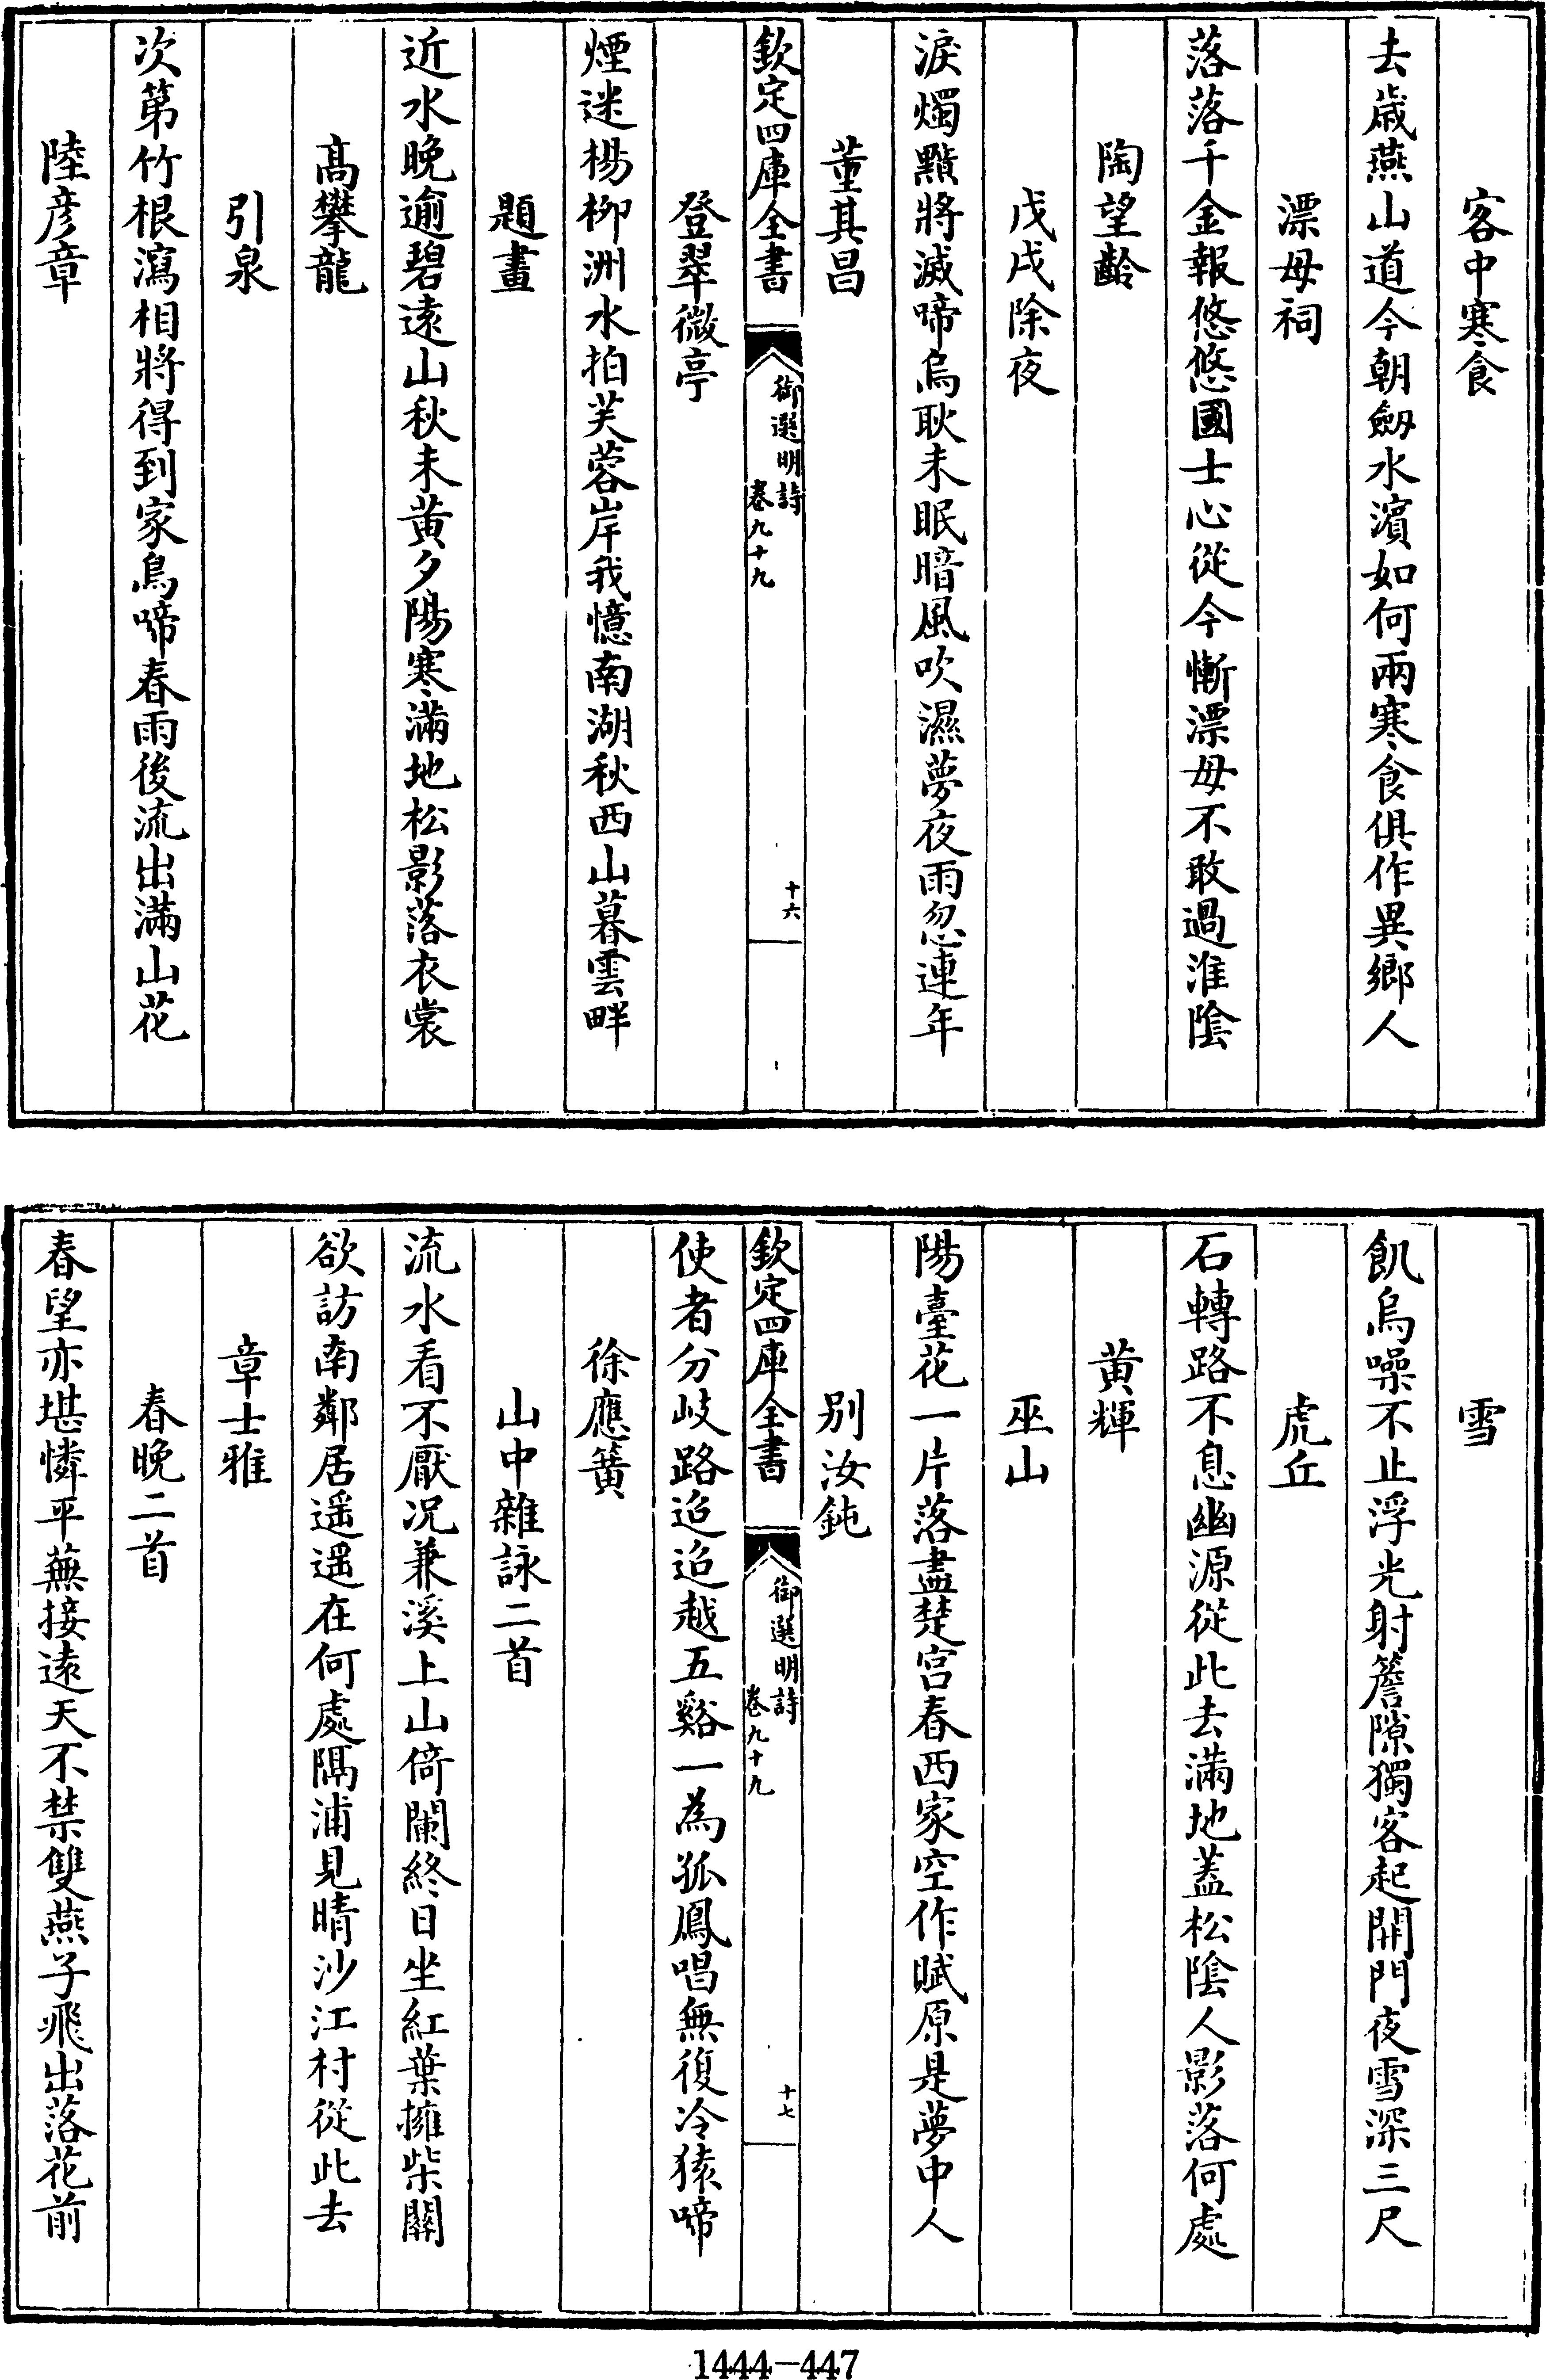 客中寒食
去歳燕山道今朝劒水濱如何兩寒食俱作異鄉人
漂母祠
落落千金報悠悠國士心從今慚漂母不敢過淮隂
陶望齡
戊戌除夜
淚燭㸃將滅啼烏耿未眠暗風吹濕夢夜雨忽連年
董其昌
欽定四庫全書
御選明詩
卷九十九
十六
登翠微亭
煙迷楊栁洲水拍芙蓉岸我憶南湖秋西山暮雲畔
題畫
近水晚逾碧遠山秋未黄夕陽寒滿地松影落衣裳
髙攀龍
引泉
次第竹根瀉相將得到家鳥啼春雨後流出滿山花
陸彦章
雪
飢烏噪不止浮光射簷隙獨客起開門夜雪深三尺
虎丘
石轉路不息幽源從此去滿地蓋松隂人影落何處
黄輝
巫山
陽臺花一片落盡楚宫春西家空作賦原是夢中人
别汝鈍
欽定四庫全書
御選明詩
卷九十九
十七
使者分岐路迢迢越五谿一為孤鳳唱無復冷猿啼
徐應簧
山中雜詠二首
流水看不厭况兼溪上山倚闌終日坐紅葉擁柴關
欲訪南鄰居遥遥在何處隔浦見晴沙江村從此去
章士雅
春晚二首
春望亦堪憐平蕪接遠天不禁雙燕子飛出落花前
1444-447